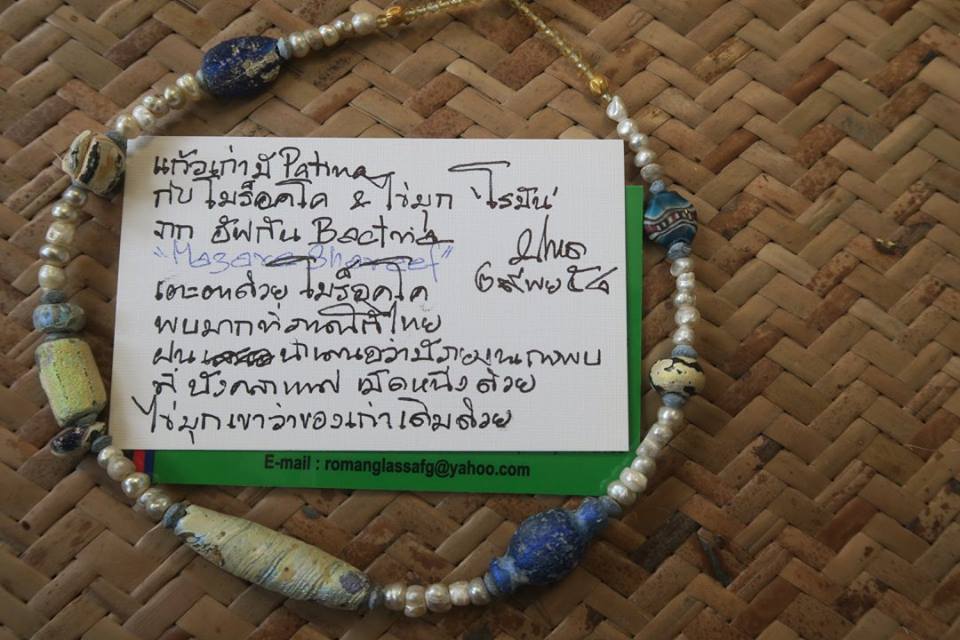 แก้วเก่ามี Patina
กับ โมร็อคโค & ไข่มุก 'โรมัน'
จาก อัฟกัน Bactria
"Mazare Shareef"
เตะตาด้วย โมร็อคโค
พบมากที่ภาคใต้ไทย
ว่ามี
ที่ บังคลาเทศ เม็ดหนึ่งด้วย
ไข่มุกเขาว่าของเก่าเดิมด้วย
๒ มีพย ๕๔
E-mail : romanglassafg@yahoo.com